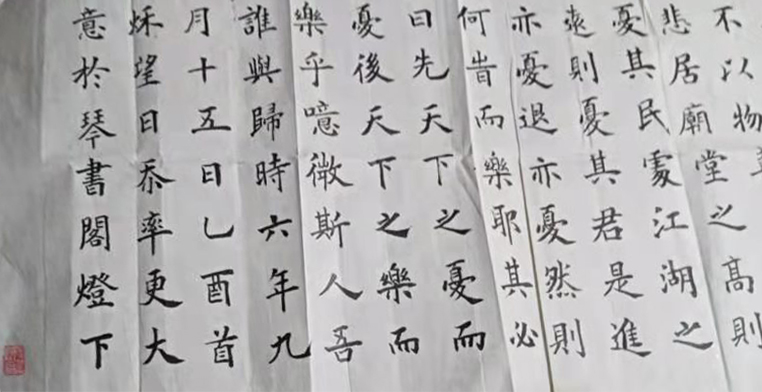 不以物
悲居廟堂之高則
憂其民處江湖之
遠則憂其君是進
亦憂退亦憂然則
何旹而樂耶其必
曰先天下之憂而
憂後天下之樂而
樂乎噫微斯人吾
誰與歸時六年九
月十五日乙酉首
望日忝率更大
意於琴書閣燈下